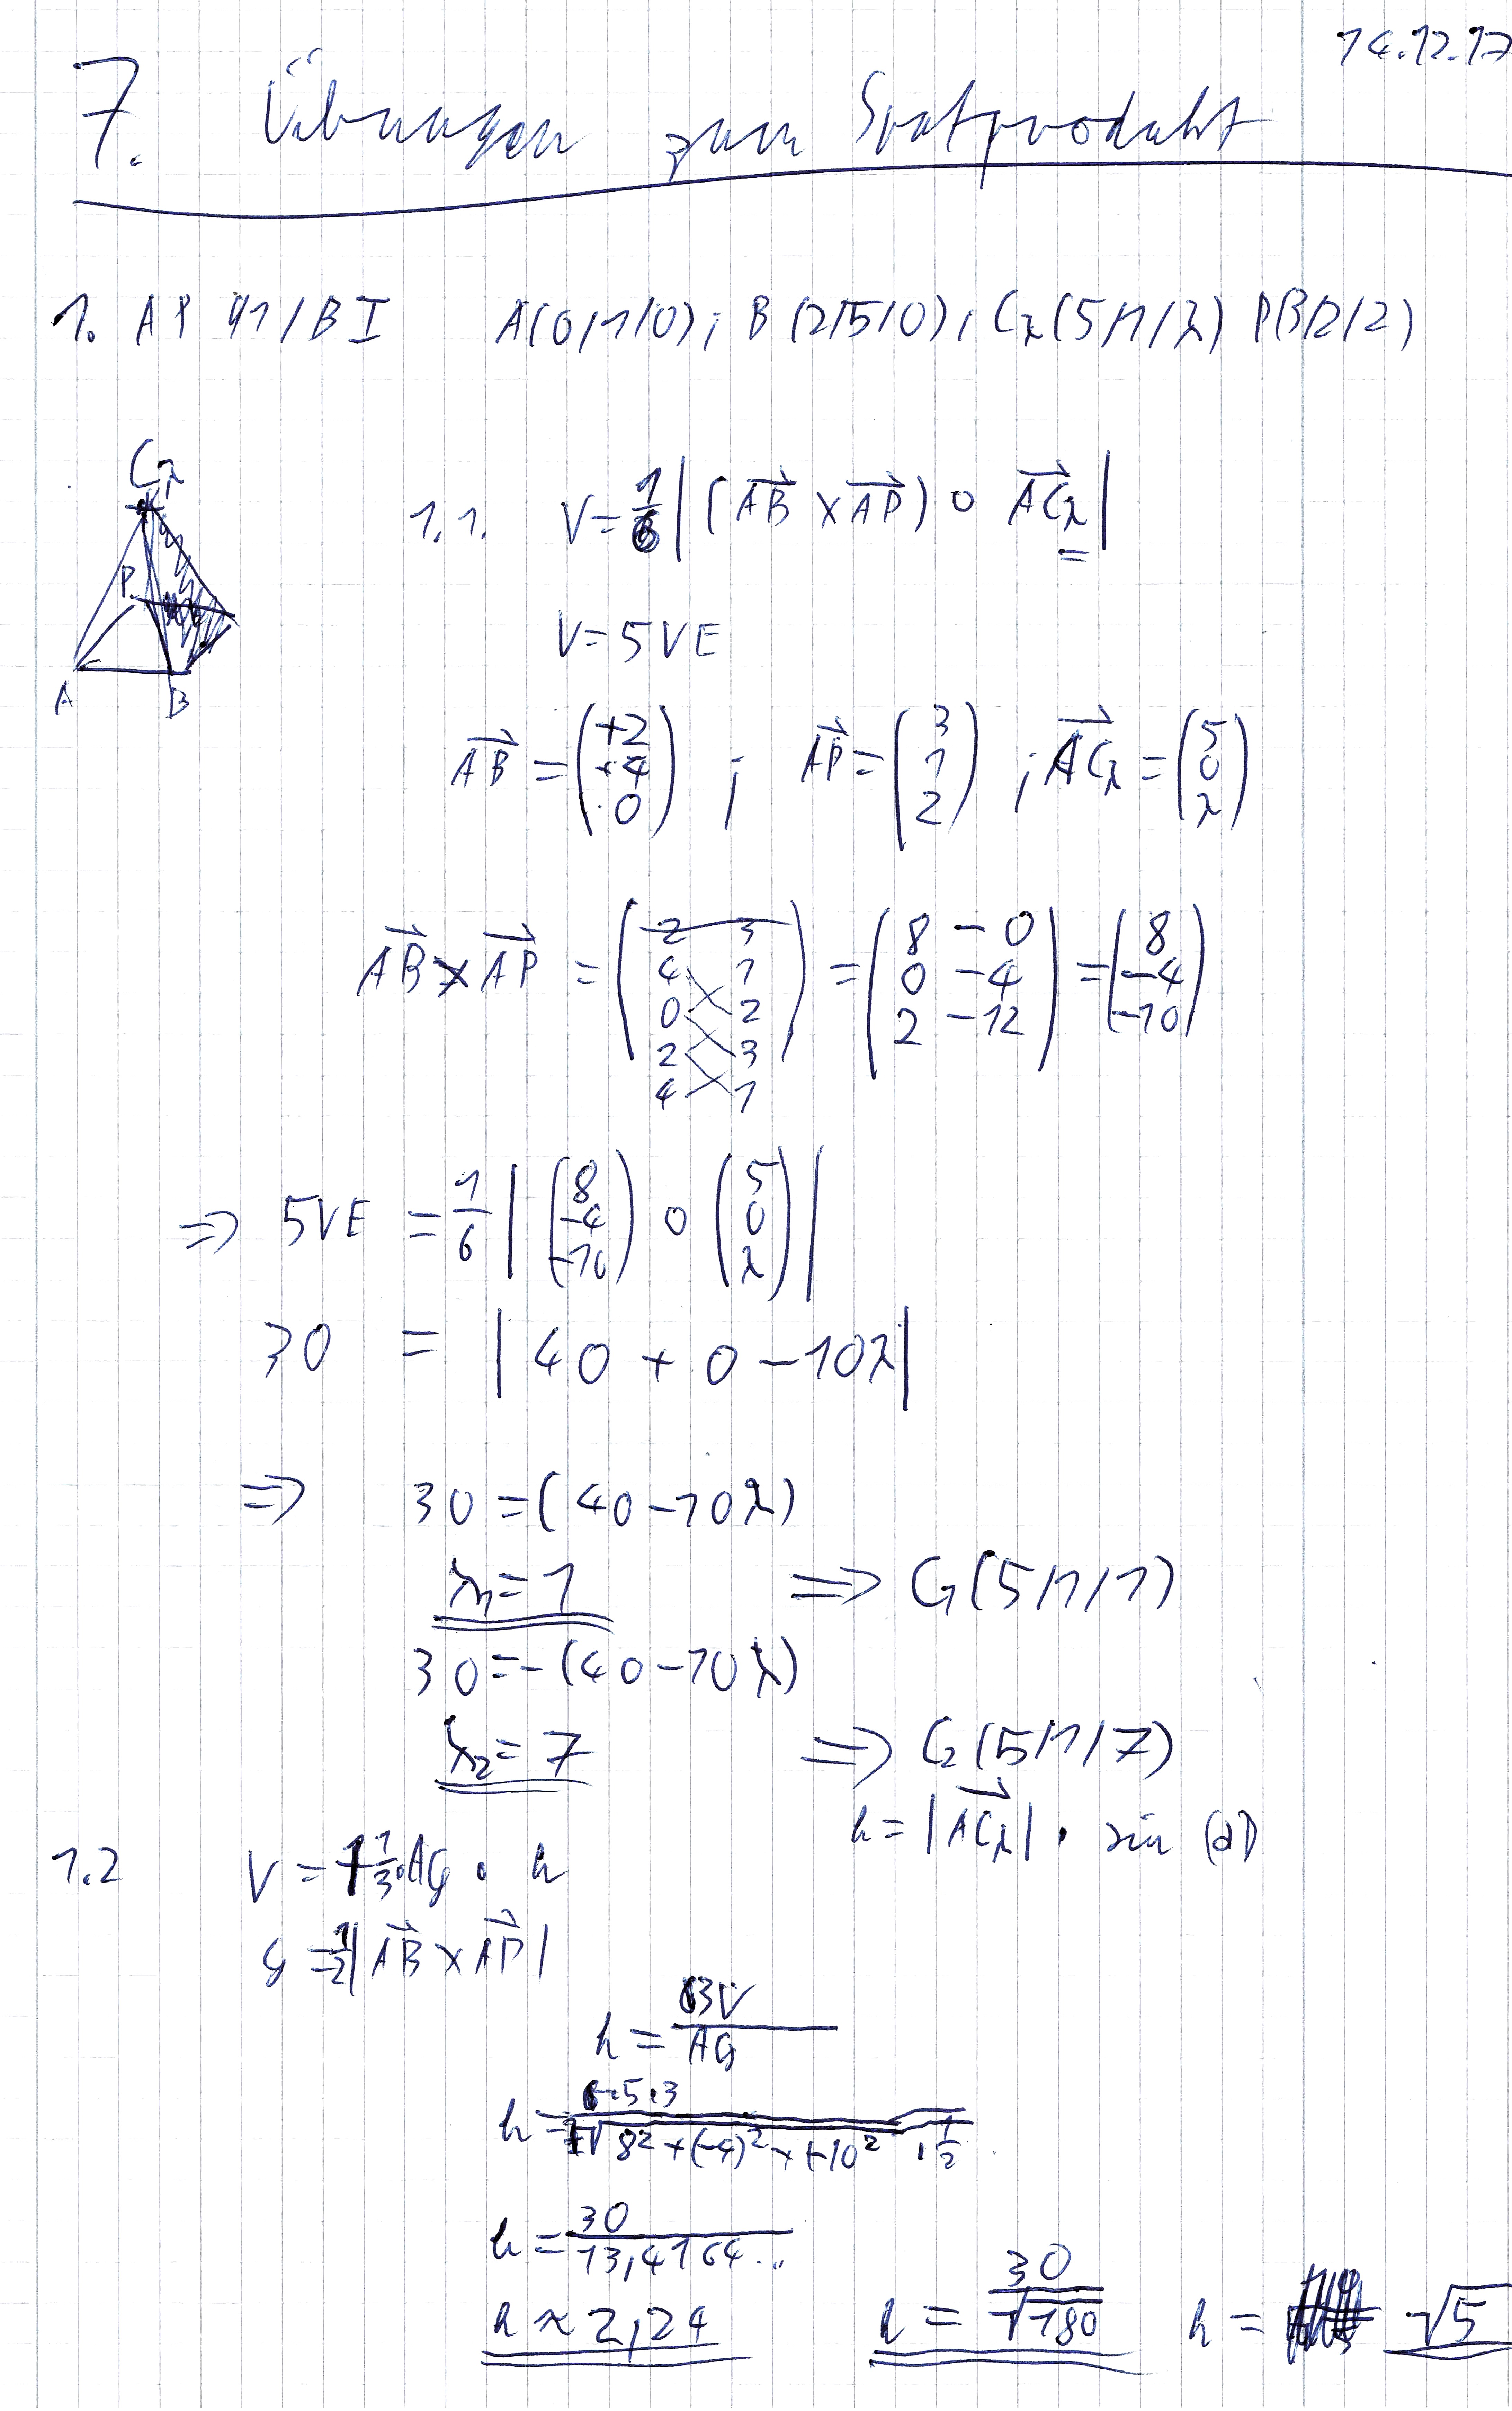 14.12.17
7. Übungen zum Spatprodukt
1. AP 41/B I A(0/1/0); B(2/5/0); Cλ(5/1/λ) P(3/2/2)
Cλ
P
A B
1.1. V = 1/6 |(AB⃗ × AP⃗) ∘ ACλ⃗|
V = 5 VE
AB⃗ = (+2 +4 0) ; AP⃗ = (3 1 2) ; ACλ⃗ = (5 0 λ)
AB⃗ × AP⃗ = (2 3 4 1 0 2 2 3 4 1) = (8 - 0 0 - 4 2 - 12) = (8 -4 -10)
⇒ 5VE = 1/6 |(8 -4 -10) ∘ (5 0 λ)|
30 = |40 + 0 - 10λ|
⇒ 30 = (40 - 10λ)
λ1 = 1 ⇒ C1(5/1/1)
30 = -(40 - 10λ)
λ2 = 7 ⇒ C2(5/1/7)
h = |ACλ⃗| · sin(α)
1.2 V = 1/3 · AG · h
G = 1/2 |AB⃗ × AP⃗|
h = 3V / AG
h = 5·3 / √8² + (-4)² + (-10² · 1/2
h = 30 / 13,4164...
h ≈ 2,24 h = 30 / √180 h = √5